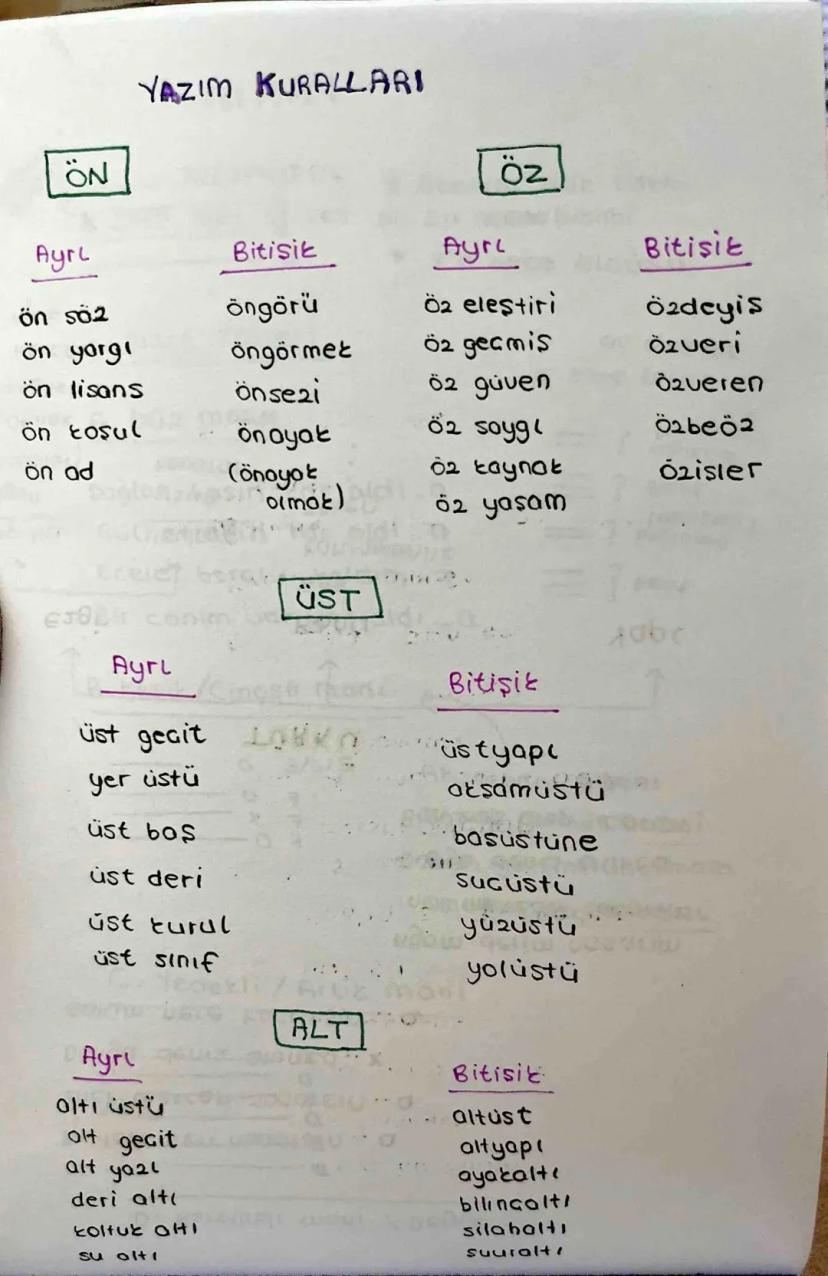 YAZIM KURALLARI
ÖN
Ayrı
Bitişik
ön söz
öngörü
ön yargı
öngörmek
ön lisans
önsezi
ön koşul
önayak
ön ad
(önayak
olmak)
ÖZ
Ayrı
Bitişik
öz eleştiri
özdeyiş
öz geçmiş
özveri
öz güven
özveren
öz saygı
özbeöz
öz kaynak
özişler
öz yaşam
ÜST
Ayrı
Bitişik
üst geçit
üstyapı
yer üstü
akşamüstü
üst baş
başüstüne
üst deri
suçüstü
üst kurul
yüzüstü
üst sınıf
yolüstü
ALT
Ayrı
Bitişik
altı üstü
altüst
alt geçit
altyapı
alt yazı
ayakaltı
deri altı
bilinçaltı
koltuk altı
silahaltı
su altı
şuuraltı